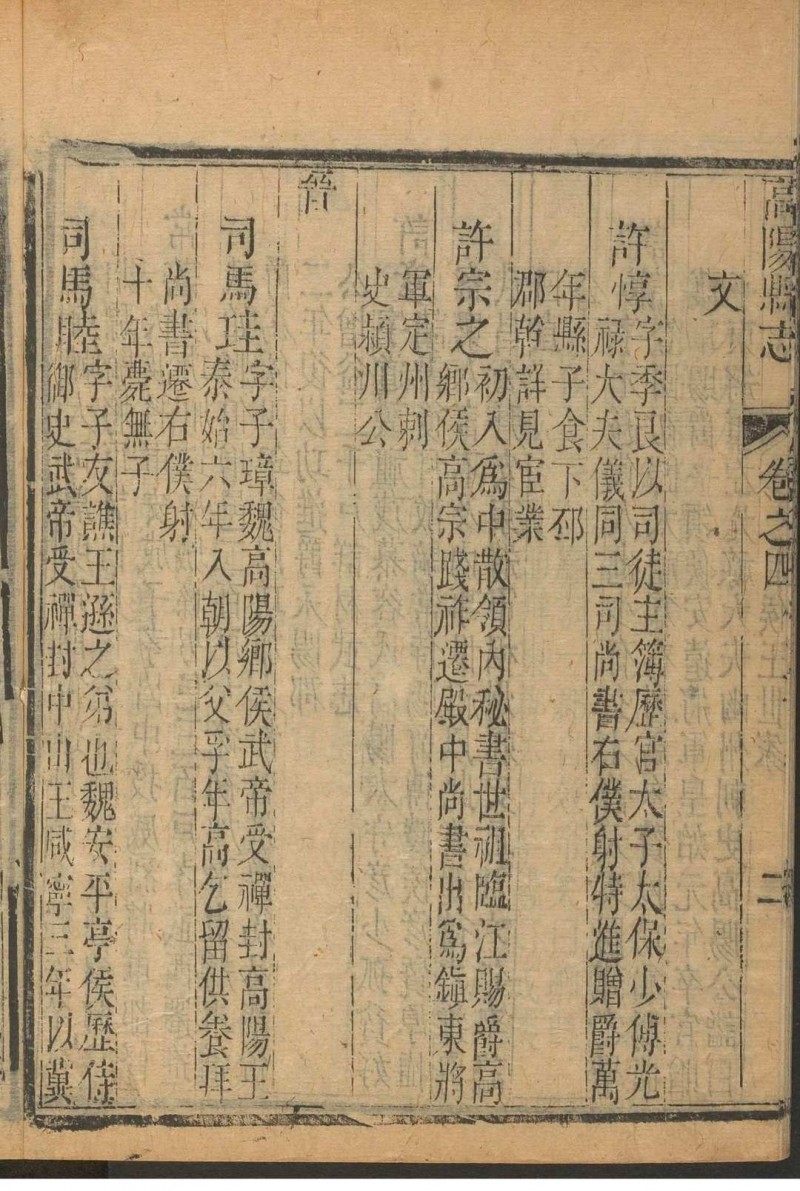 高陽縣志 卷之四 侯王世家 二
文
許惇字季良以司徒主簿歷官太子太保少傅光
祿大夫儀同三司尚書右僕射特進贈爵萬
年縣子食下邳
郡幹詳見宦業
許宗之初入為中散領內秘書世祖臨江賜爵高
鄉侯高宗踐祚遷殿中尚書出為鎮東將
軍定州刺
史潁川公
晉
司馬珪字子璋魏高陽鄉侯武帝受禪封高陽王
泰始六年入朝以父孚年高乞留供養拜
尚書遷右僕射
十年薨無子
司馬睦字子友譙王遜之弟也魏安平亭侯歷侍
御史武帝受禪封中山王咸寧三年以冀